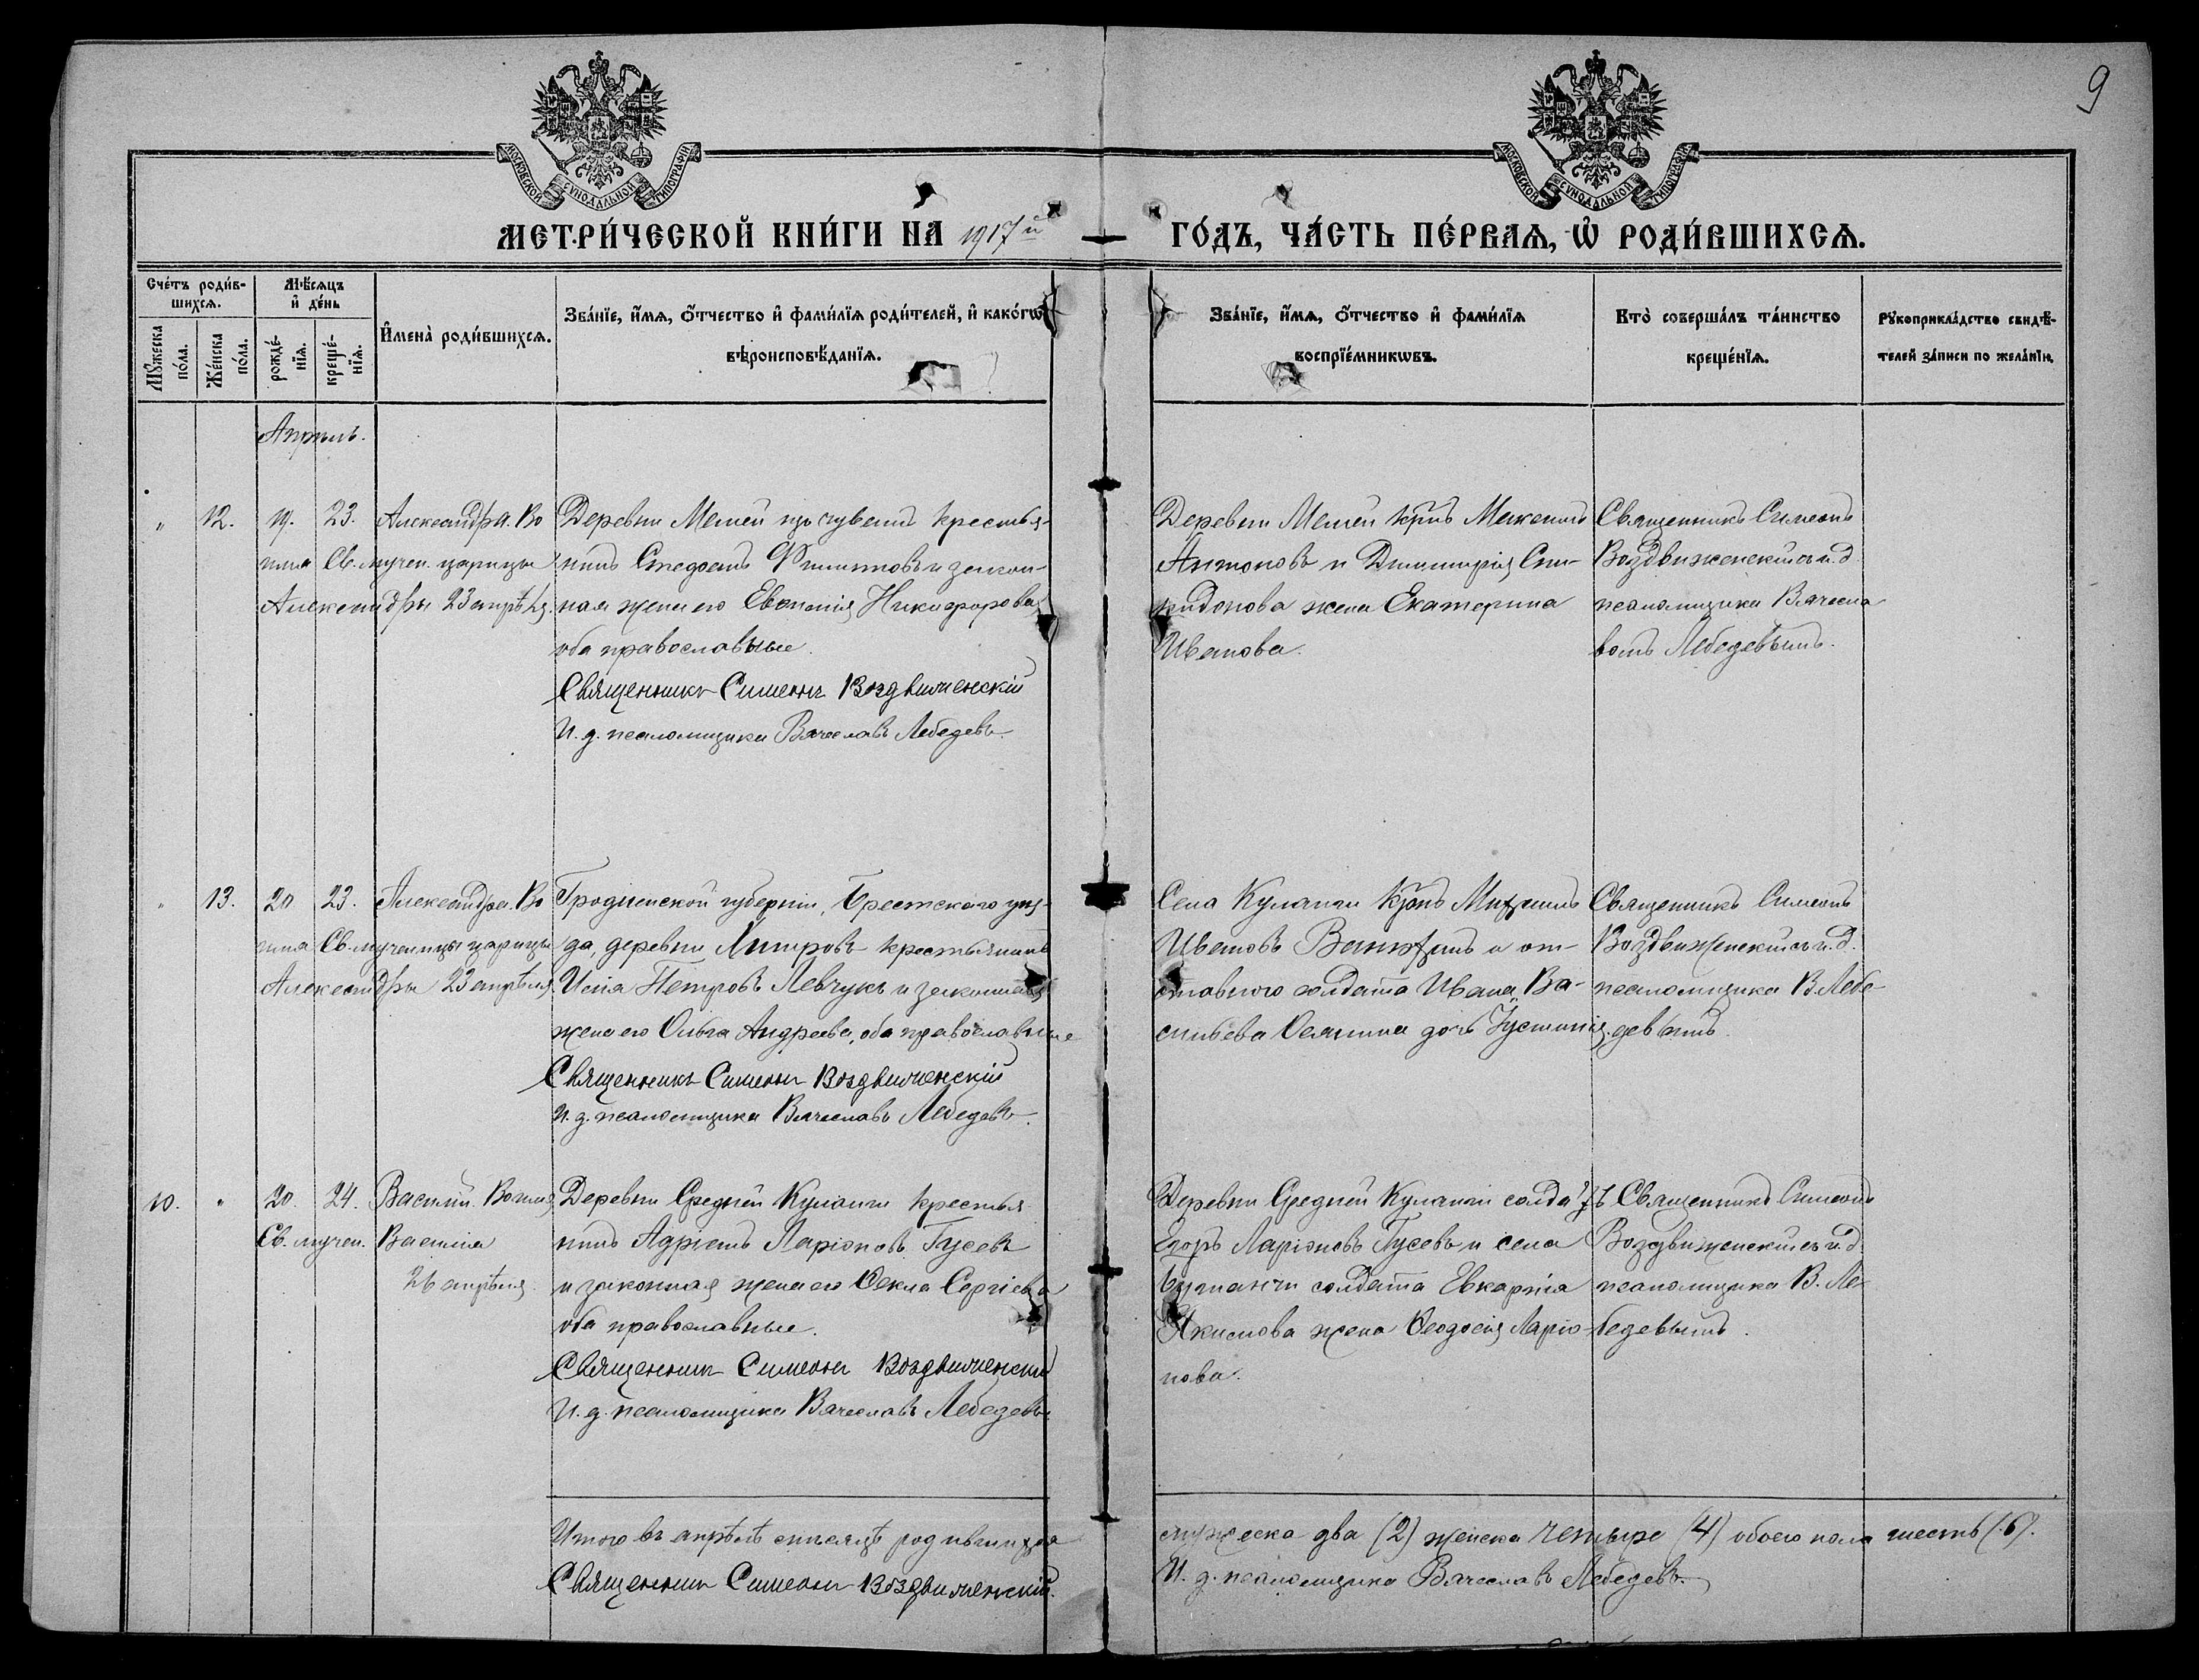 9
МОСКОВСКОЙ СѴНОДАЛЬНОЙ ТИПОГРАФІИ
МОСКОВСКОЙ СѴНОДАЛЬНОЙ ТИПОГРАФІИ
МЕТРИ́ЧЕСКОЙ КНИ́ГИ НА 1917 й ГО́ДЪ, ЧА́СТЬ ПЕ́РВАЯ, Ѡ҆ РОДИ́ВШИХСЯ.
Сче́тъ роди́в-
шихся.
Мѣ́сяцъ
и҆ де́нь
Мꙋ́жеска
по́ла.
Же́нска
по́ла.
рожде́-
нїя.
креще́-
нїя.
И҆мена̀ роди́вшихся.
Зва́нїе, и҆́мя, о҆́тчество и҆ фами́лїя роди́телей, и҆ како́гѡ
вѣроисповѣ́данїя.
Зва́нїе, и҆́мя, о҆́тчество и҆ фами́лїя
воспрїе́мникѡвъ.
Кто̀ соверша́лъ та́инство
креще́нїя.
Рꙋкоприкла́дство свидѣ́-
телей за́писи по жела́нїю.
Апрѣль.
" 12. 19. 23. Александра. Во
имя Св. мучен. царицы
Александры 23 апрѣля.
Деревни Мемей изъ чувашъ крестья-
нинъ Филипповъ и закон-
ная жена его Никифорова
оба православные.
Священникъ Симеонъ Воздвиженскій
И. д. псаломщика Вячеславъ Лебедевъ.
Деревни Мемей кр̃нъ Максимъ
Антоновъ и Димитрія Спи-
ридонова жена Екатерина
Иванова.
Священникъ Симеонъ
Воздвиженскій съ и. д.
псаломщика Вячесла-
вомъ Лебедевымъ.
" 13. 20 23. Александра. Во
имя Св. мученицы царицы
Александры 23 апрѣля.
Гродненской губерніи, Брестскаго уѣз-
да, деревни крестьянинъ
Петровъ Левчукъ и законная
жена его Ольга Андреева, оба православные
Священникъ Симеонъ Воздвиженскій
И. д. псаломщика Вячеславъ Лебедевъ.
Села Куланги кр̃нъ Михаилъ
Ивановъ и от-
ставного солдата Ивана Ва-
сильева дочь Іустинія.
Священникъ Симеонъ
Воздвиженскій съ и. д.
псаломщика В. Лебе-
девымъ.
10. " 20. 24. Василій. Во имя
Св. мучен. Василія
26 апрѣля.
Деревни Средней Куланги крестья
нинъ Адріанъ Ларіоновъ Гусевъ
и законная жена его Ѳекла Сергіева
оба православные.
Священникъ Симеонъ Воздвиженскій
И. д. псаломщика Вячеславъ Лебедевъ.
Деревни Средней Куланги солдатъ
Егоръ Ларіоновъ Гусевъ и села
солдата Евкарпія
Якимова жена Ѳеодосія Ларіо-
нова.
Священникъ Симеонъ
Воздвиженскій съ и. д.
псаломщика В. Ле-
бедевымъ.
Итого въ апрѣлѣ мѣсяцѣ родившихся мужеска два (2) женска четыре (4) обоего пола шесть (6).
Священникъ Симеонъ Воздвиженскій. И. д. псаломщика Вячеславъ Лебедевъ.